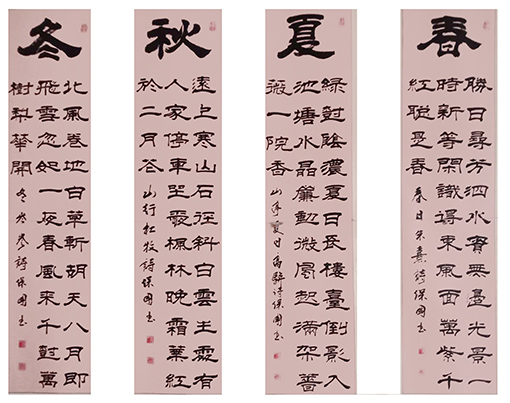 春
勝日尋芳泗水濱無邊光景一
時新等閑識得東風面萬紫千
紅總是春
春日朱熹詩保國書
夏
綠樹陰濃夏日長樓臺倒影入
池塘水晶簾動微風起滿架薔
薇一院香
山亭夏日高駢詩保國書
秋
遠上寒山石徑斜白雲生處有
人家停車坐愛楓林晚霜葉紅
於二月花
山行杜牧詩保國書
冬
北風卷地白草折胡天八月即
飛雪忽如一夜春風來千樹萬
樹梨華開
冬岑參詩保國書